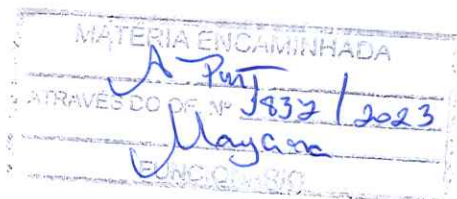 MATÉRIA ENCAMINHADA
A
ATRAVÉS DO OF. Nº 1832 / 2023
Mayana
FUNCIONÁRIO